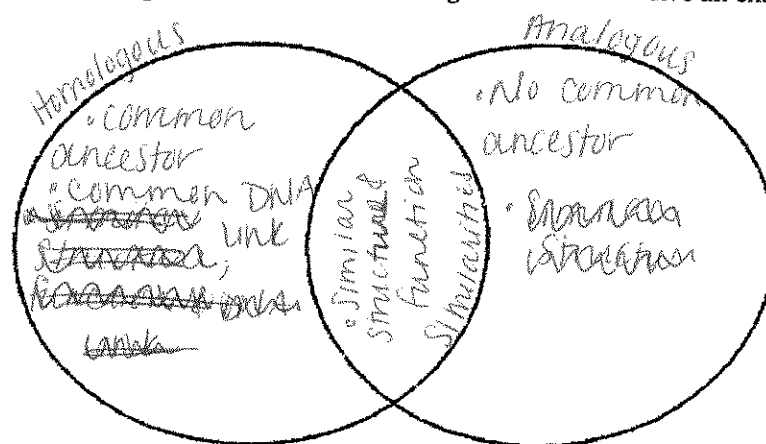 Homologous
• common
ancestor
• common DNA
link
• Similar
structure &
function
similarities
Analogous
• No common
ancestor